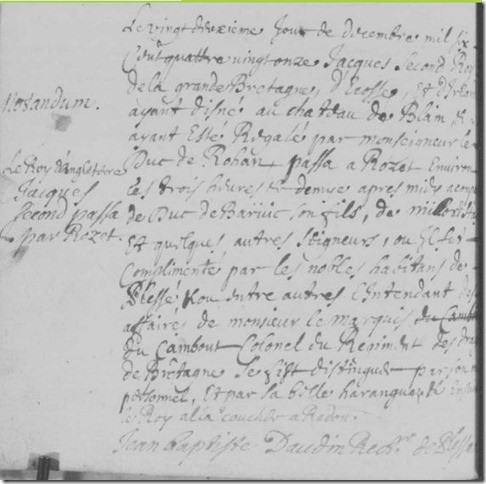 Le vingt deuxième Jour de decembre mil six
Cent quattre vingt onze Jacques Second Roy
de la grande Bretagne, d'Ecosse, Et d'Irlan
ayant disné au chateau de Blain &
ayant Esté Regalé par monseigneur le
Duc de Rohan, passa a Rozet Environ
les trois heures & demye apres midy
de Duc de Barwic son fils, de milord
Et quelques autres Seigneurs, ou Il fut
Complimenté par les nobles habitans de
Blessé & ou entre autres L'Intendant des
affaires de monsieur le marquis du Cambout
du Cambout Colonel du Regiment des
de Bretagne Se fist distinguer par son
personnel, Et par sa belle harangue, &
le Roy alla coucher a Redon.
Jean baptiste Daudin Rect.r de
Notandum.
Le Roy d'Angleterre
Jacques
Second passa
par Rozet.